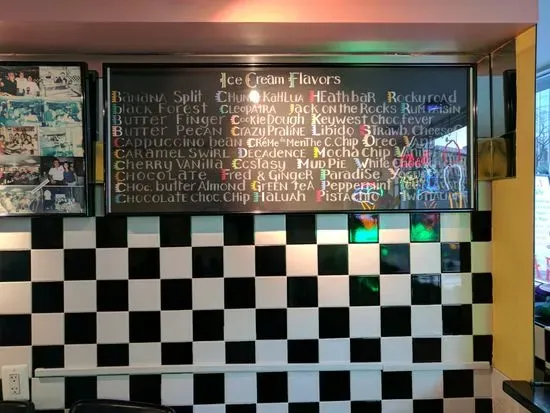 Ice Cream Flavors
Banana Split Chunky Kahlua Heathbar Rocky road
black Forest Cleopatra Jack on the Rocks Rum raisin
Butter Finger Cookie Dough Key west Choc. fever
Butter Pecan Crazy Praline Libido Strawb. Cheese
Cappuccino bean Créme de Menthe C. Chip Oreo
Caramel Swirl Decadence Mocha Chip
Cherry Vanilla Ecstasy Mud Pie White
Chocolate Fred & Ginger Paradise
Choc. butter Almond Green tea Peppermint
Chocolate Choc. Chip Haluah Pistachio